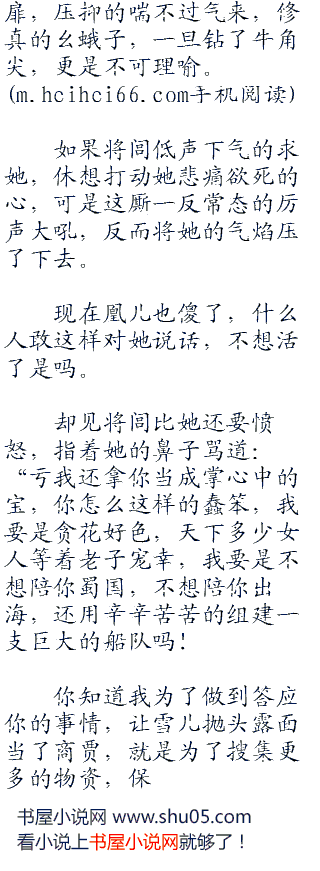 扉，压抑的喘不过气来，修
真的幺蛾子，一旦钻了牛角
尖，更是不可理喻。
(m.hcihci66.com手机阅读)
如果将闾低声下气的求
她，休想打动她悲痛欲死的
心，可是这厮一反常态的厉
声大吼，反而将她的气焰压
了下去。
现在凰儿也傻了，什么
人敢这样对她说话，不想活
了是吗。
却见将闾比她还要愤
怒，指着她的鼻子骂道：
“亏我还拿你当成掌心中的
宝，你怎么这样的蠢笨，我
要是贪花好色，天下多少女
人等着老子宠幸，我要是不
想陪你蜀国，不想陪你出
海，还用辛辛苦苦的组建一
支巨大的船队吗！
你知道我为了做到答应
你的事情，让雪儿抛头露面
当了商贾，就是为了搜集更
多的物资，保
书屋小说网 www.shu05.com
看小说上书屋小说网就够了！